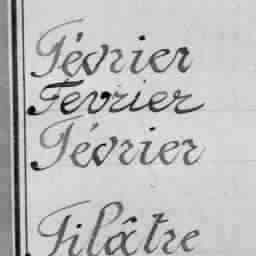 Février
Février
Février
Filâtre